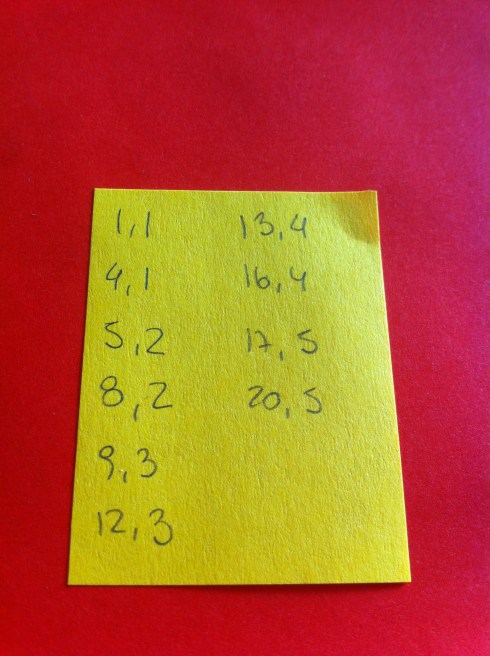 1,1
4,1
5,2
8,2
9,3
12,3
13,4
16,4
17,5
20,5